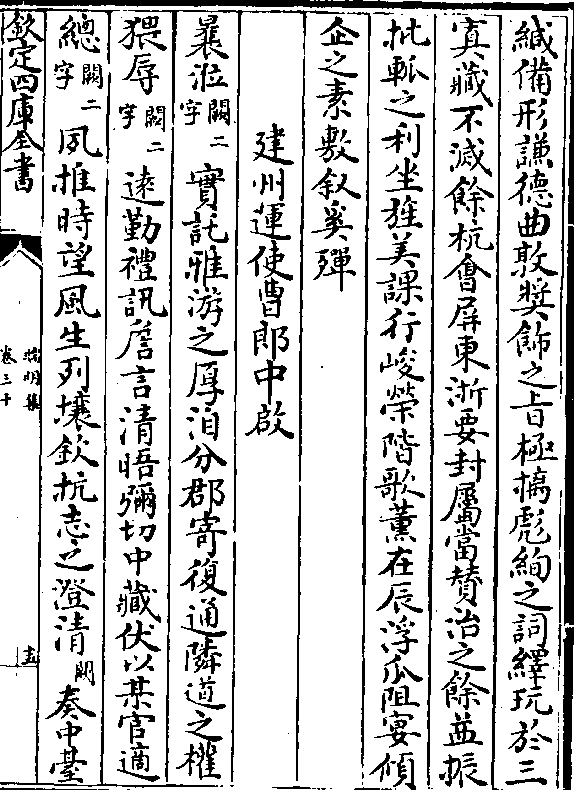 緘備形謙德曲敦奬飾之㫖極摛彪絢之詞繹玩於三
寘藏不滅餘杭會屏東浙要封屬當賛治之餘並振
批郄之利坐推美課行峻榮階歌薰在辰浮瓜阻宴傾
企之素敷叙奚殫
建州運使曹郎中啟
曩涖闕二字實託雅游之厚洎分郡寄復通隣道之權
猥辱闕二字逺勤禮訊詹言清晤彌切中藏伏以某官適
總闕二字夙推時望風生列壤欽抗志之澄清闕奏中臺
欽定四庫全書
端明集
卷三十
十五